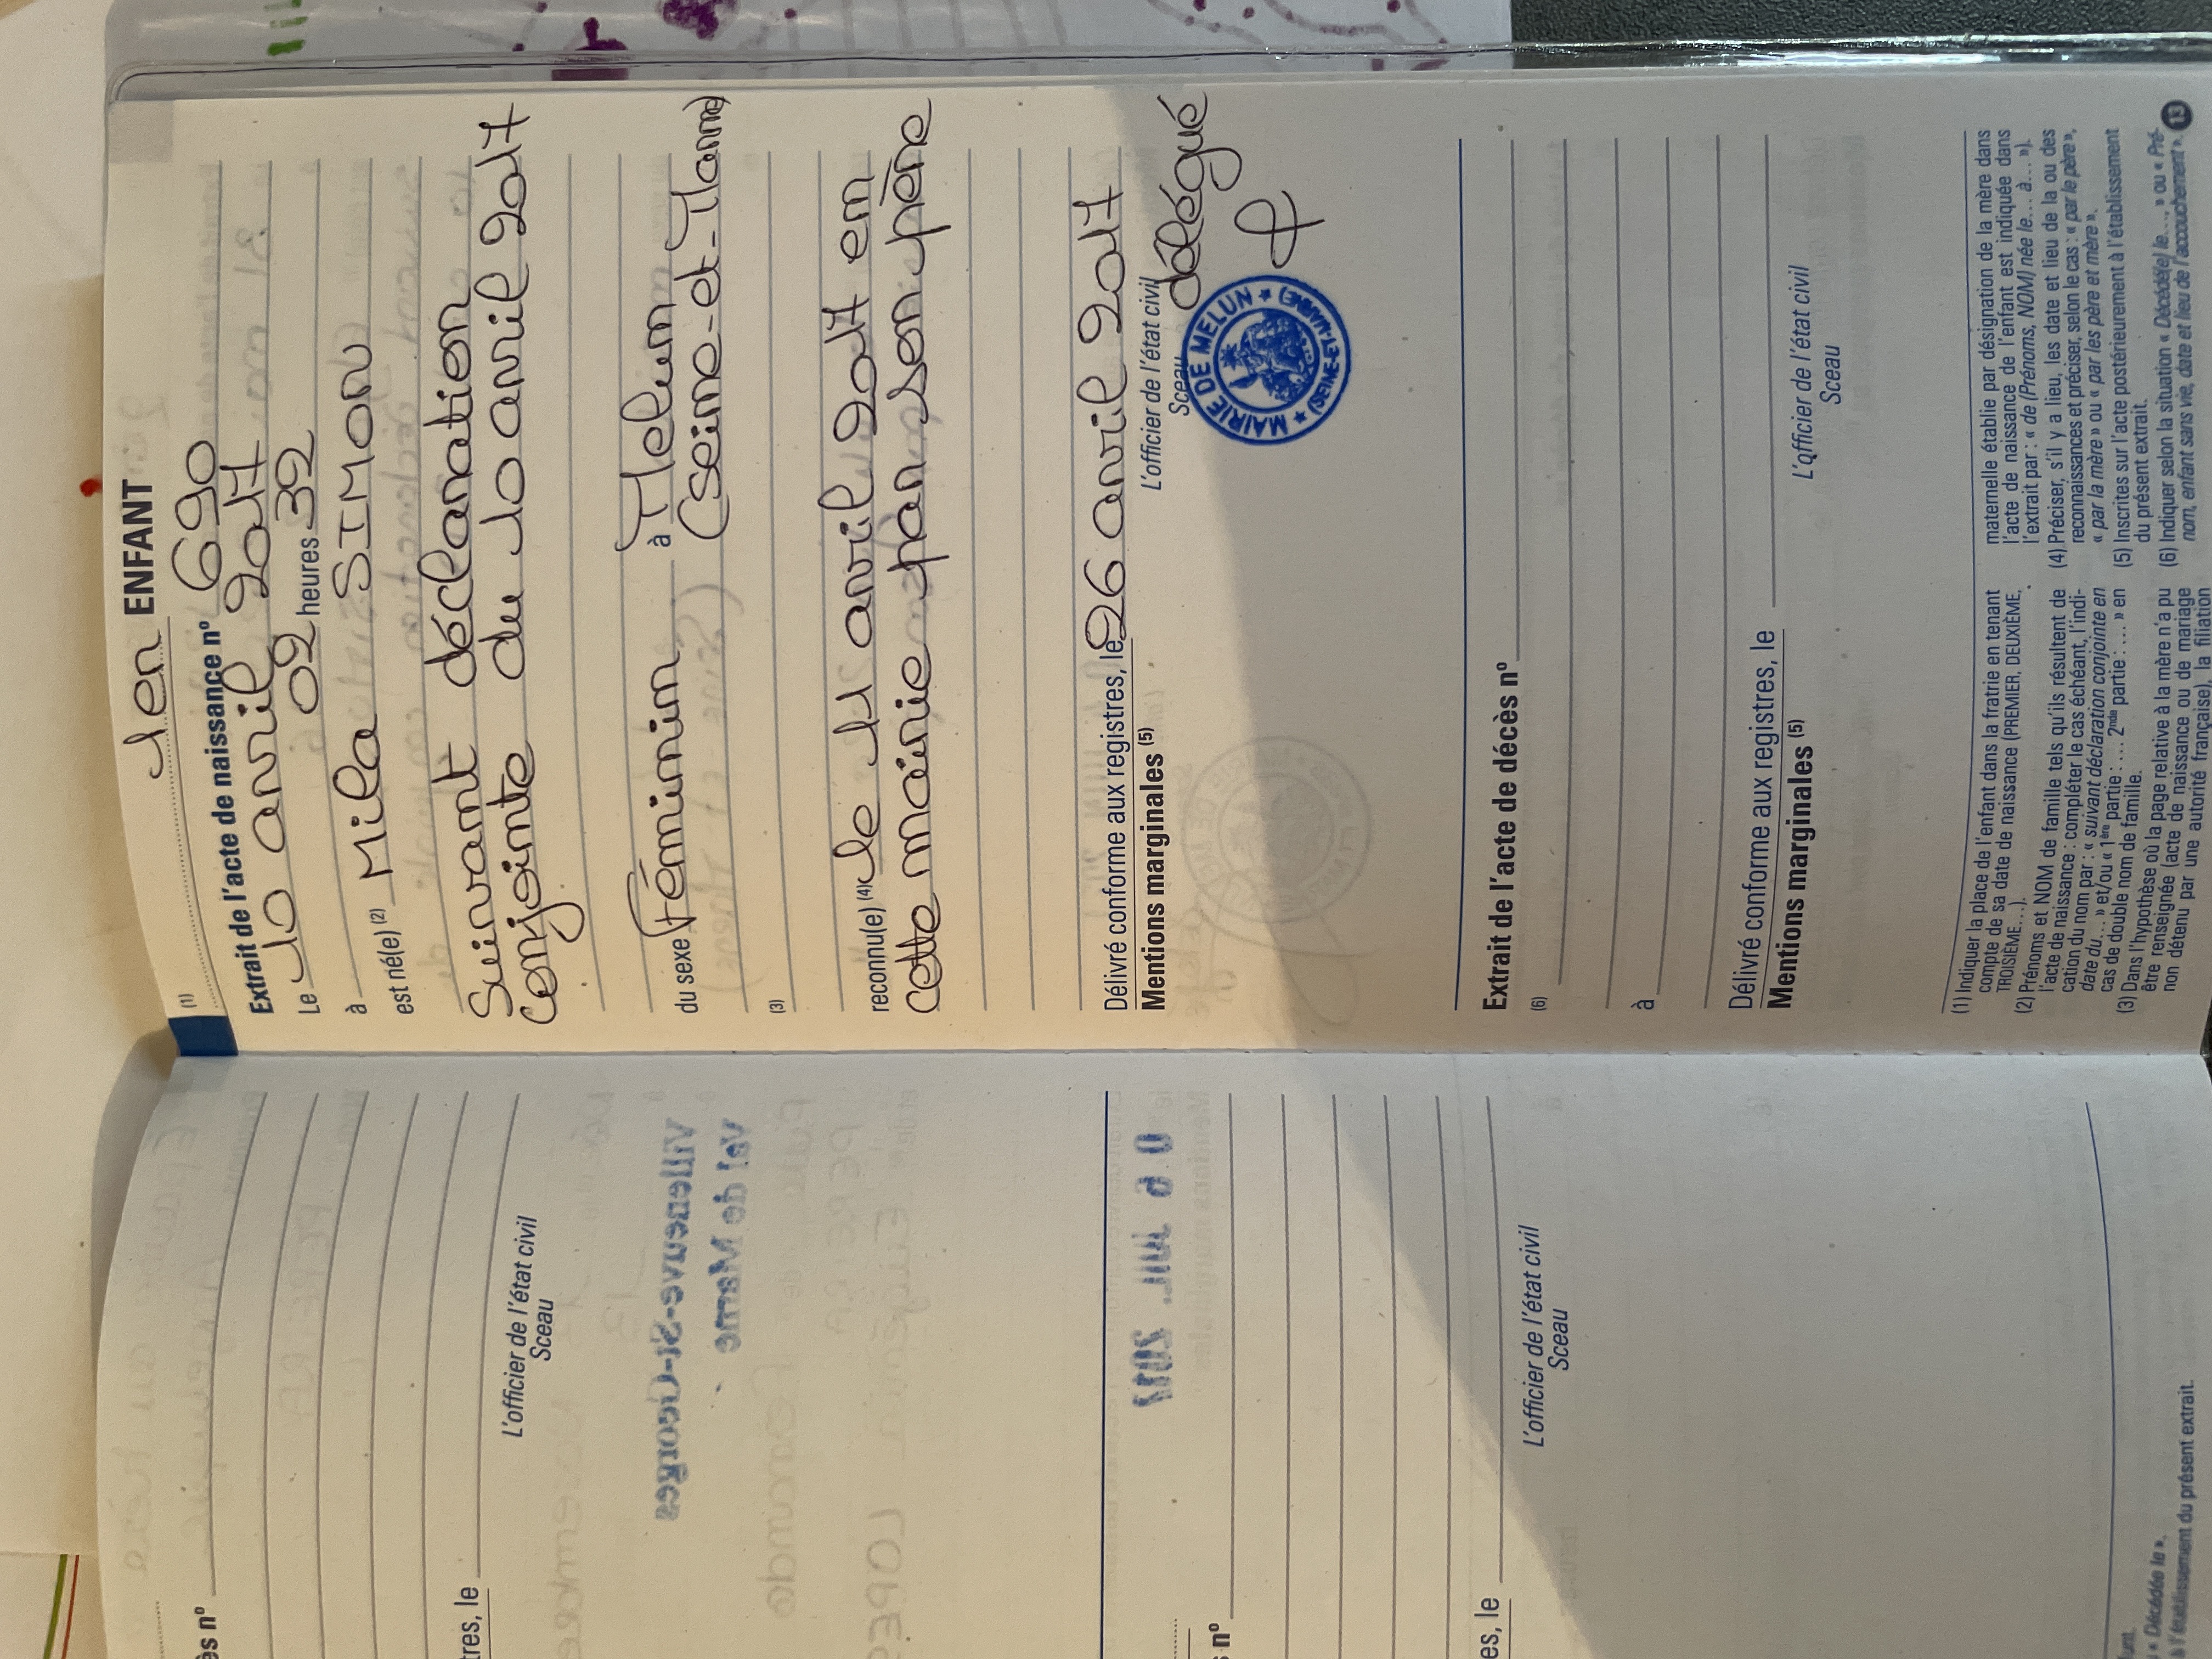 1er ENFANT
(1)
Extrait de l'acte de naissance nº 690
Le 10 avril 2017
à 02 heures 32
est né(e) (2) Mila SIMON
Suivant déclaration
conjointe du 10 avril 2017
du sexe Féminin à Melun
(Seine-et-Marne)
(3)
reconnu(e) (4) le 11 avril 2017 en
cette mairie par son père
Délivré conforme aux registres, le 26 avril 2017
Mentions marginales (5)
L'officier de l'état civil
Sceau
délégué
MAIRIE DE MELUN
(SEINE-ET-MARNE)
Extrait de l'acte de décès nº
(6)
à
Délivré conforme aux registres, le
Mentions marginales (5)
L'officier de l'état civil
Sceau
(1) Indiquer la place de l'enfant dans la fratrie en tenant
compte de sa date de naissance (PREMIER, DEUXIÈME,
TROISIÈME...).
(2) Prénoms et NOM de famille tels qu'ils résultent de
l'acte de naissance : compléter le cas échéant, l'indi-
cation du nom par : « suivant déclaration conjointe en
date du... » et/ou « 1ère partie : .... 2nde partie : .... » en
cas de double nom de famille.
(3) Dans l'hypothèse où la page relative à la mère n'a pu
être renseignée (acte de naissance ou de mariage
non détenu par une autorité française), la filiation
maternelle établie par désignation de la mère dans
l'acte de naissance de l'enfant est indiquée dans
l'extrait par : « de (Prénoms, NOM) née le... à... »).
(4) Préciser, s'il y a lieu, les date et lieu de la ou des
reconnaissances et préciser, selon le cas : « par le père »,
« par la mère » ou « par les père et mère ».
(5) Inscrites sur l'acte postérieurement à l'établissement
du présent extrait.
(6) Indiquer selon la situation « Décédé(e) le..., » ou « Pré-
nom, enfant sans vie, date et lieu de l'accouchement ».
13
ès nº
tres, le
L'officier de l'état civil
Sceau
Villeneuve-St-Georges
Val de Marne
s nº
es, le
L'officier de l'état civil
Sceau
« Décédée le ».
à l'établissement du présent extrait.